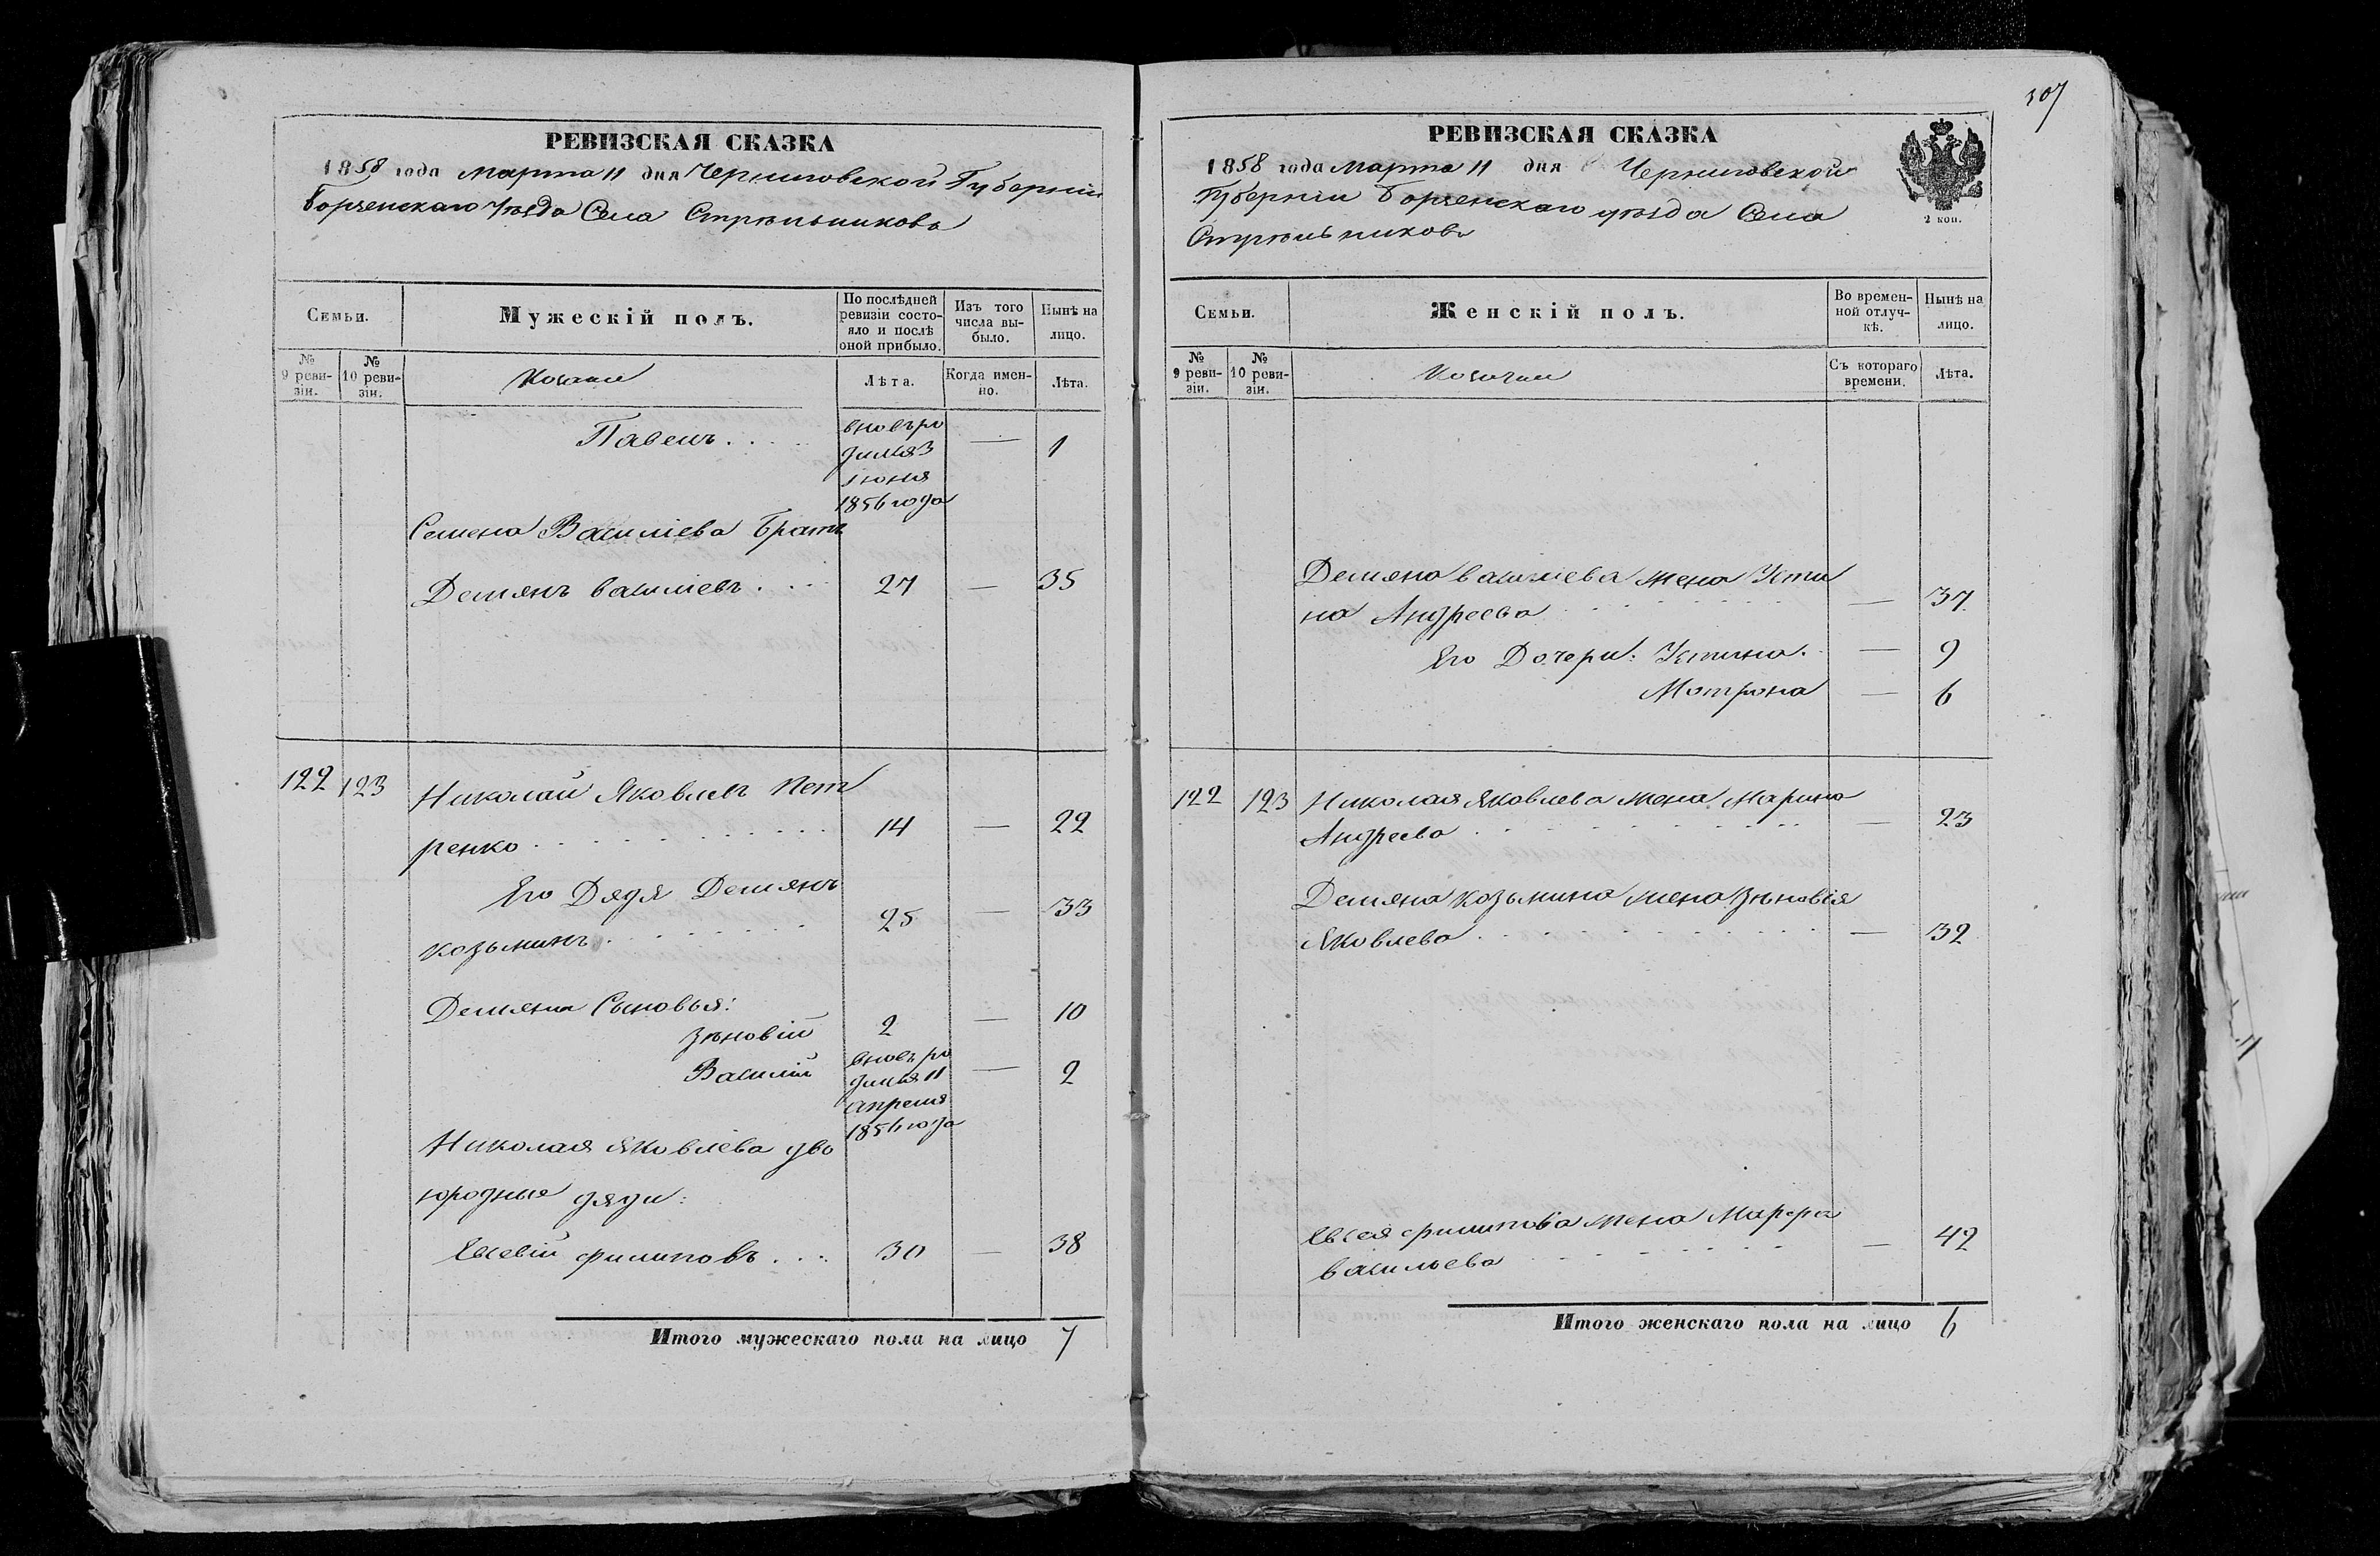 РЕВИЗСКАЯ СКАЗКА
1858 года Марта 11 дня Черниговской Губерніи
Борзенскаго Уѣзда Села Стрѣльниковъ
Семьи.
Мужескій полъ.
По послѣдней ревизіи состояло и послѣ оной прибыло.
Изъ того числа выбыло.
Нынѣ на лицо.
№ 9 ревизіи.
№ 10 ревизіи.
Козаки
Лѣта.
Когда именно.
Лѣта.
Павелъ . . . . вновь ро — 1
дился 3
іюня
1856 года
Семена Василіева Братъ
Демянъ Василіевъ . . . 27 — 35
122 123 Николай Яковлевъ Пет
ренко . . . . . . . . . . 14 — 22
Его Дядя Демянъ
Козьминъ . . . . . . . 25 — 33
Демяна Сыновья:
Зѣновій 2 — 10
Василій вновь ро — 2
дился 11
апреля
1856 года
Николая Яковлева дво
юродные дяди:
Евсевій Филиповъ . . . 30 — 38
Итого мужескаго пола на лицо 7
307
РЕВИЗСКАЯ СКАЗКА
1858 года Марта 11 дня Черниговской
Губерніи Борзенскаго уѣзда Села
Стрѣльниковъ
2 коп.
Семьи.
Женскій полъ.
Во временной отлучкѣ.
Нынѣ на лицо.
№ 9 ревизіи.
№ 10 ревизіи.
Козачки
Съ котораго времени.
Лѣта.
Демяна Василіева жена Усти
на Андреева . . . . . . . — 37
Его Дочери: Устина . — 9
Мотрона — 6
122 123 Николая Яковлева жена Марина
Андреева . . . . . . . . . . — 23
Демяна Козьмина жена Зѣновія
Яковлева . . . . . . . . . — 32
Евсея Филипова жена Марфа
Васильева . . . . . . . . — 42
Итого женскаго пола на лицо 6